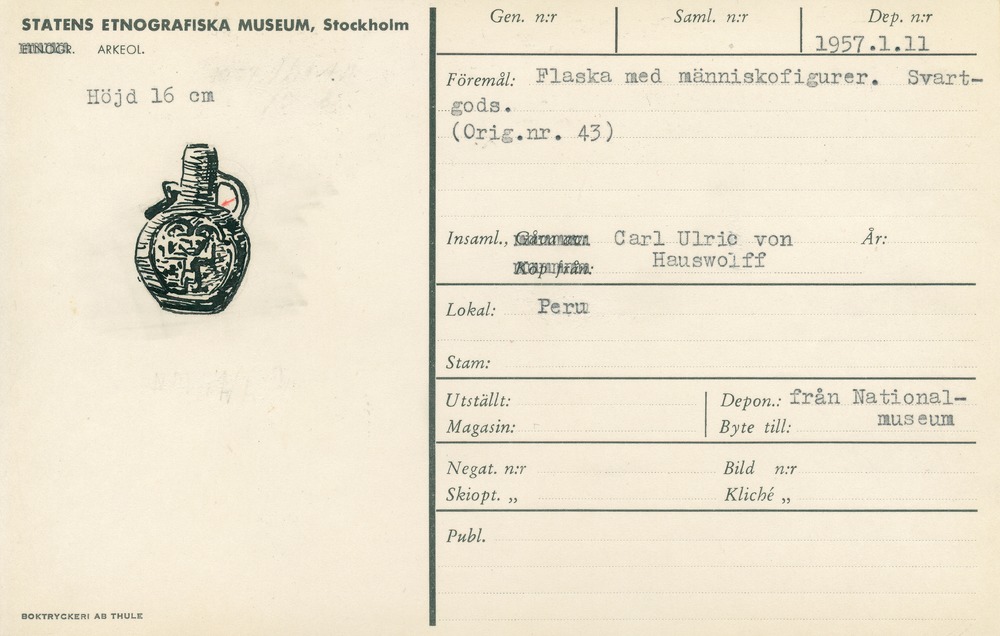 STATENS ETNOGRAFISKA MUSEUM, Stockholm
ETNOGR. ARKEOL.
Höjd 16 cm
BOKTRYCKERI AB THULE
Gen. n:r
Saml. n:r
Dep. n:r
1957.1.11
Föremål: Flaska med människofigurer. Svart-
gods.
(Orig.nr. 43)
Insaml., Gåva av: Carl Ulric von År:
Köp från: Hauswolff
Lokal: Peru
Stam:
Utställt:
Magasin:
Depon.: från National-
Byte till: museum
Negat. n:r Bild n:r
Skiopt. „ Kliché „
Publ.